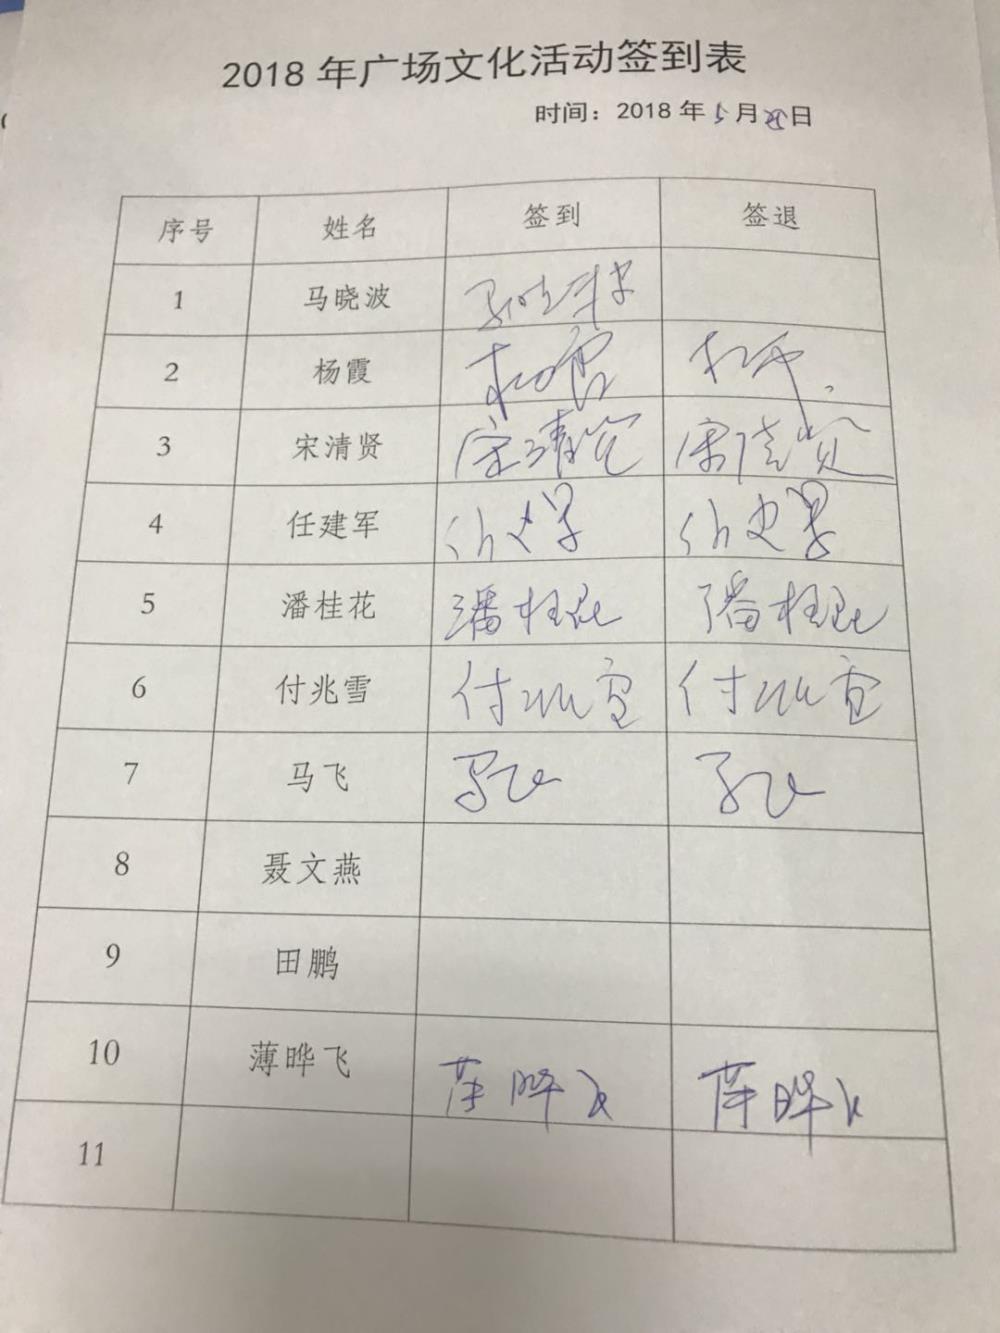 2018 年广场文化活动签到表
时间：2018 年 5 月 28 日
序号 姓名 签到 签退
1 马晓波 马晓波
2 杨霞 杨霞 杨霞
3 宋清贤 宋清贤 宋清贤
4 任建军 任建军 任建军
5 潘桂花 潘桂花 潘桂花
6 付兆雪 付兆雪 付兆雪
7 马飞 马飞 马飞
8 聂文燕
9 田鹏
10 薄晔飞 薄晔飞 薄晔飞
11